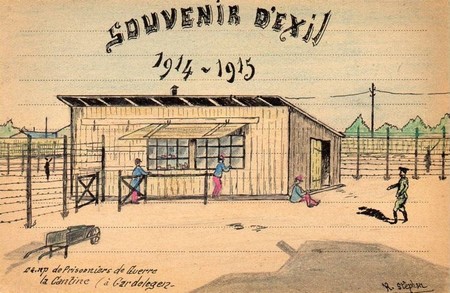 SOUVENIR D'EXIL
1914 ~ 1915
de Prisonniers de Guerre
la Cantine (à Gardelegen